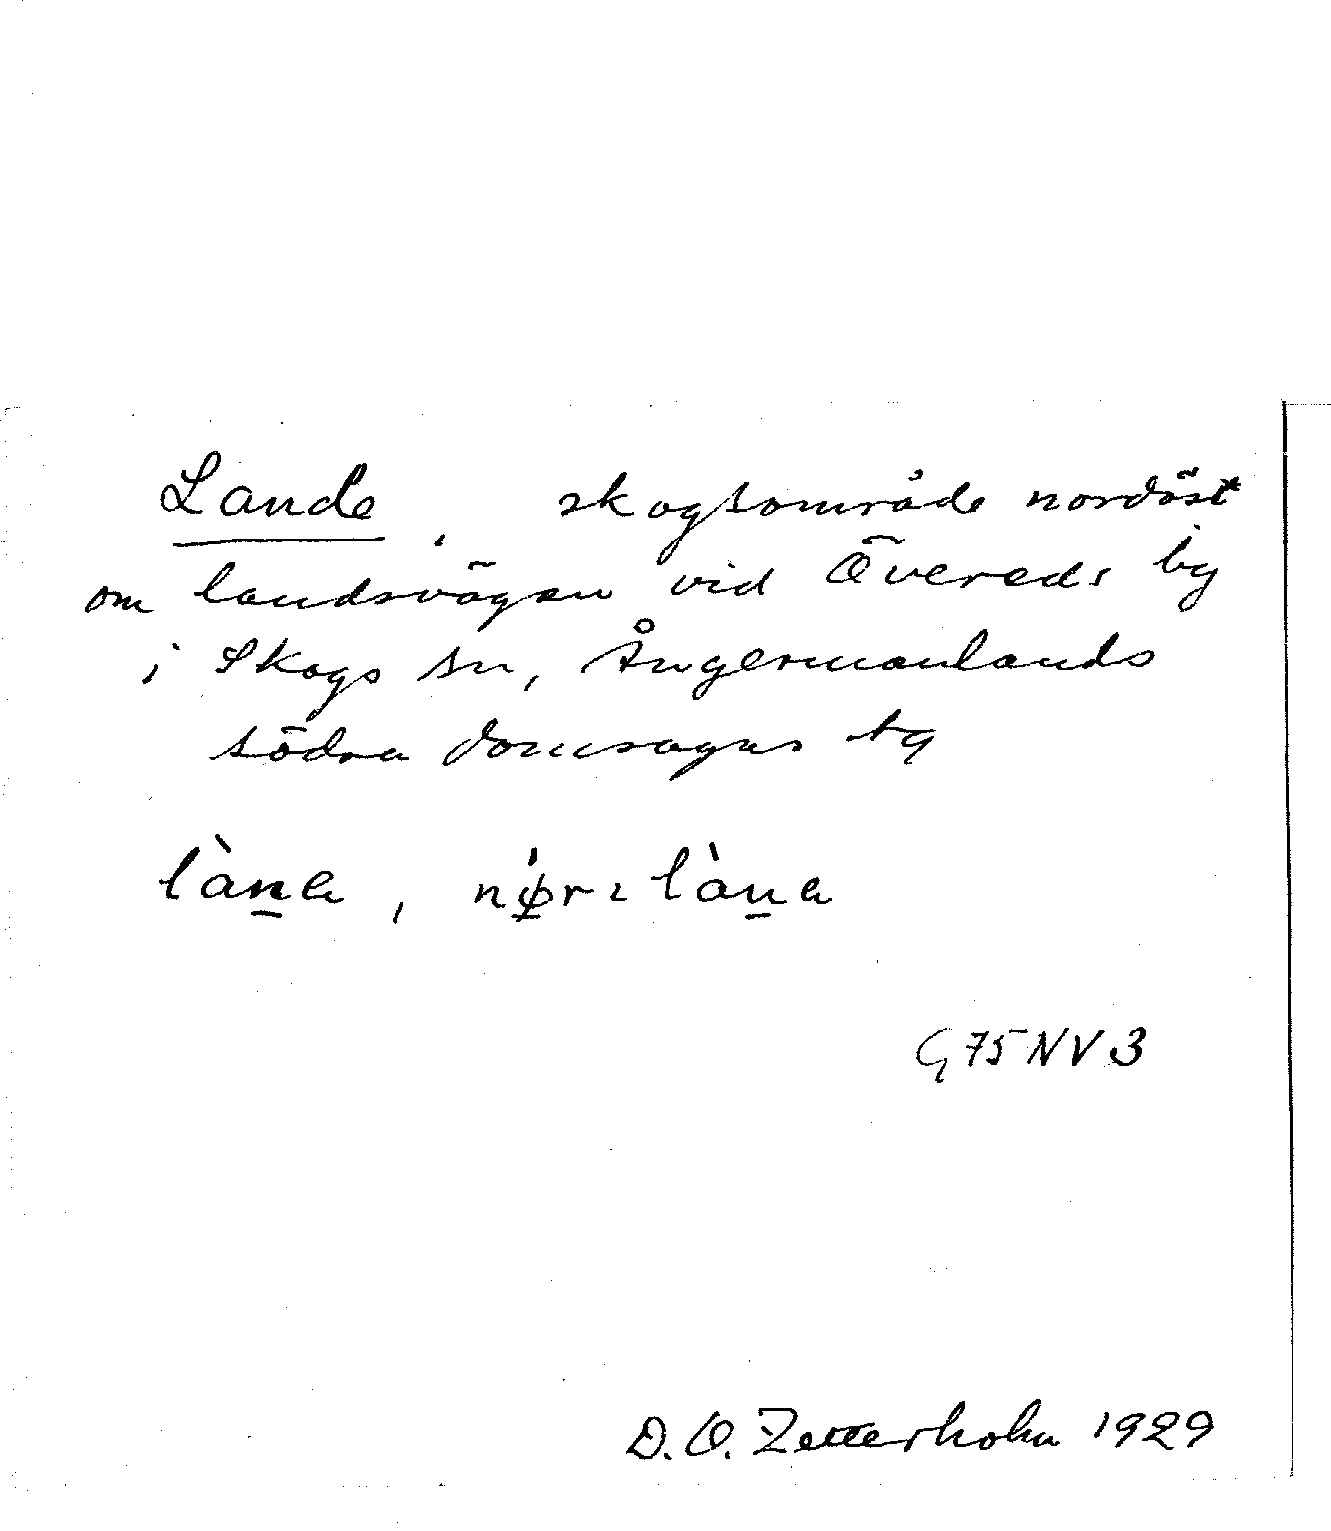 Lande, skogsområde nordöst
om landsvägen vid Övereds by
i Skogs sn, Ångermanlands
södra domsagas tg
làn̠a, nǿ̠rɩlàn̠a
G 75 NV 3
D. O. Zetterholm 1929